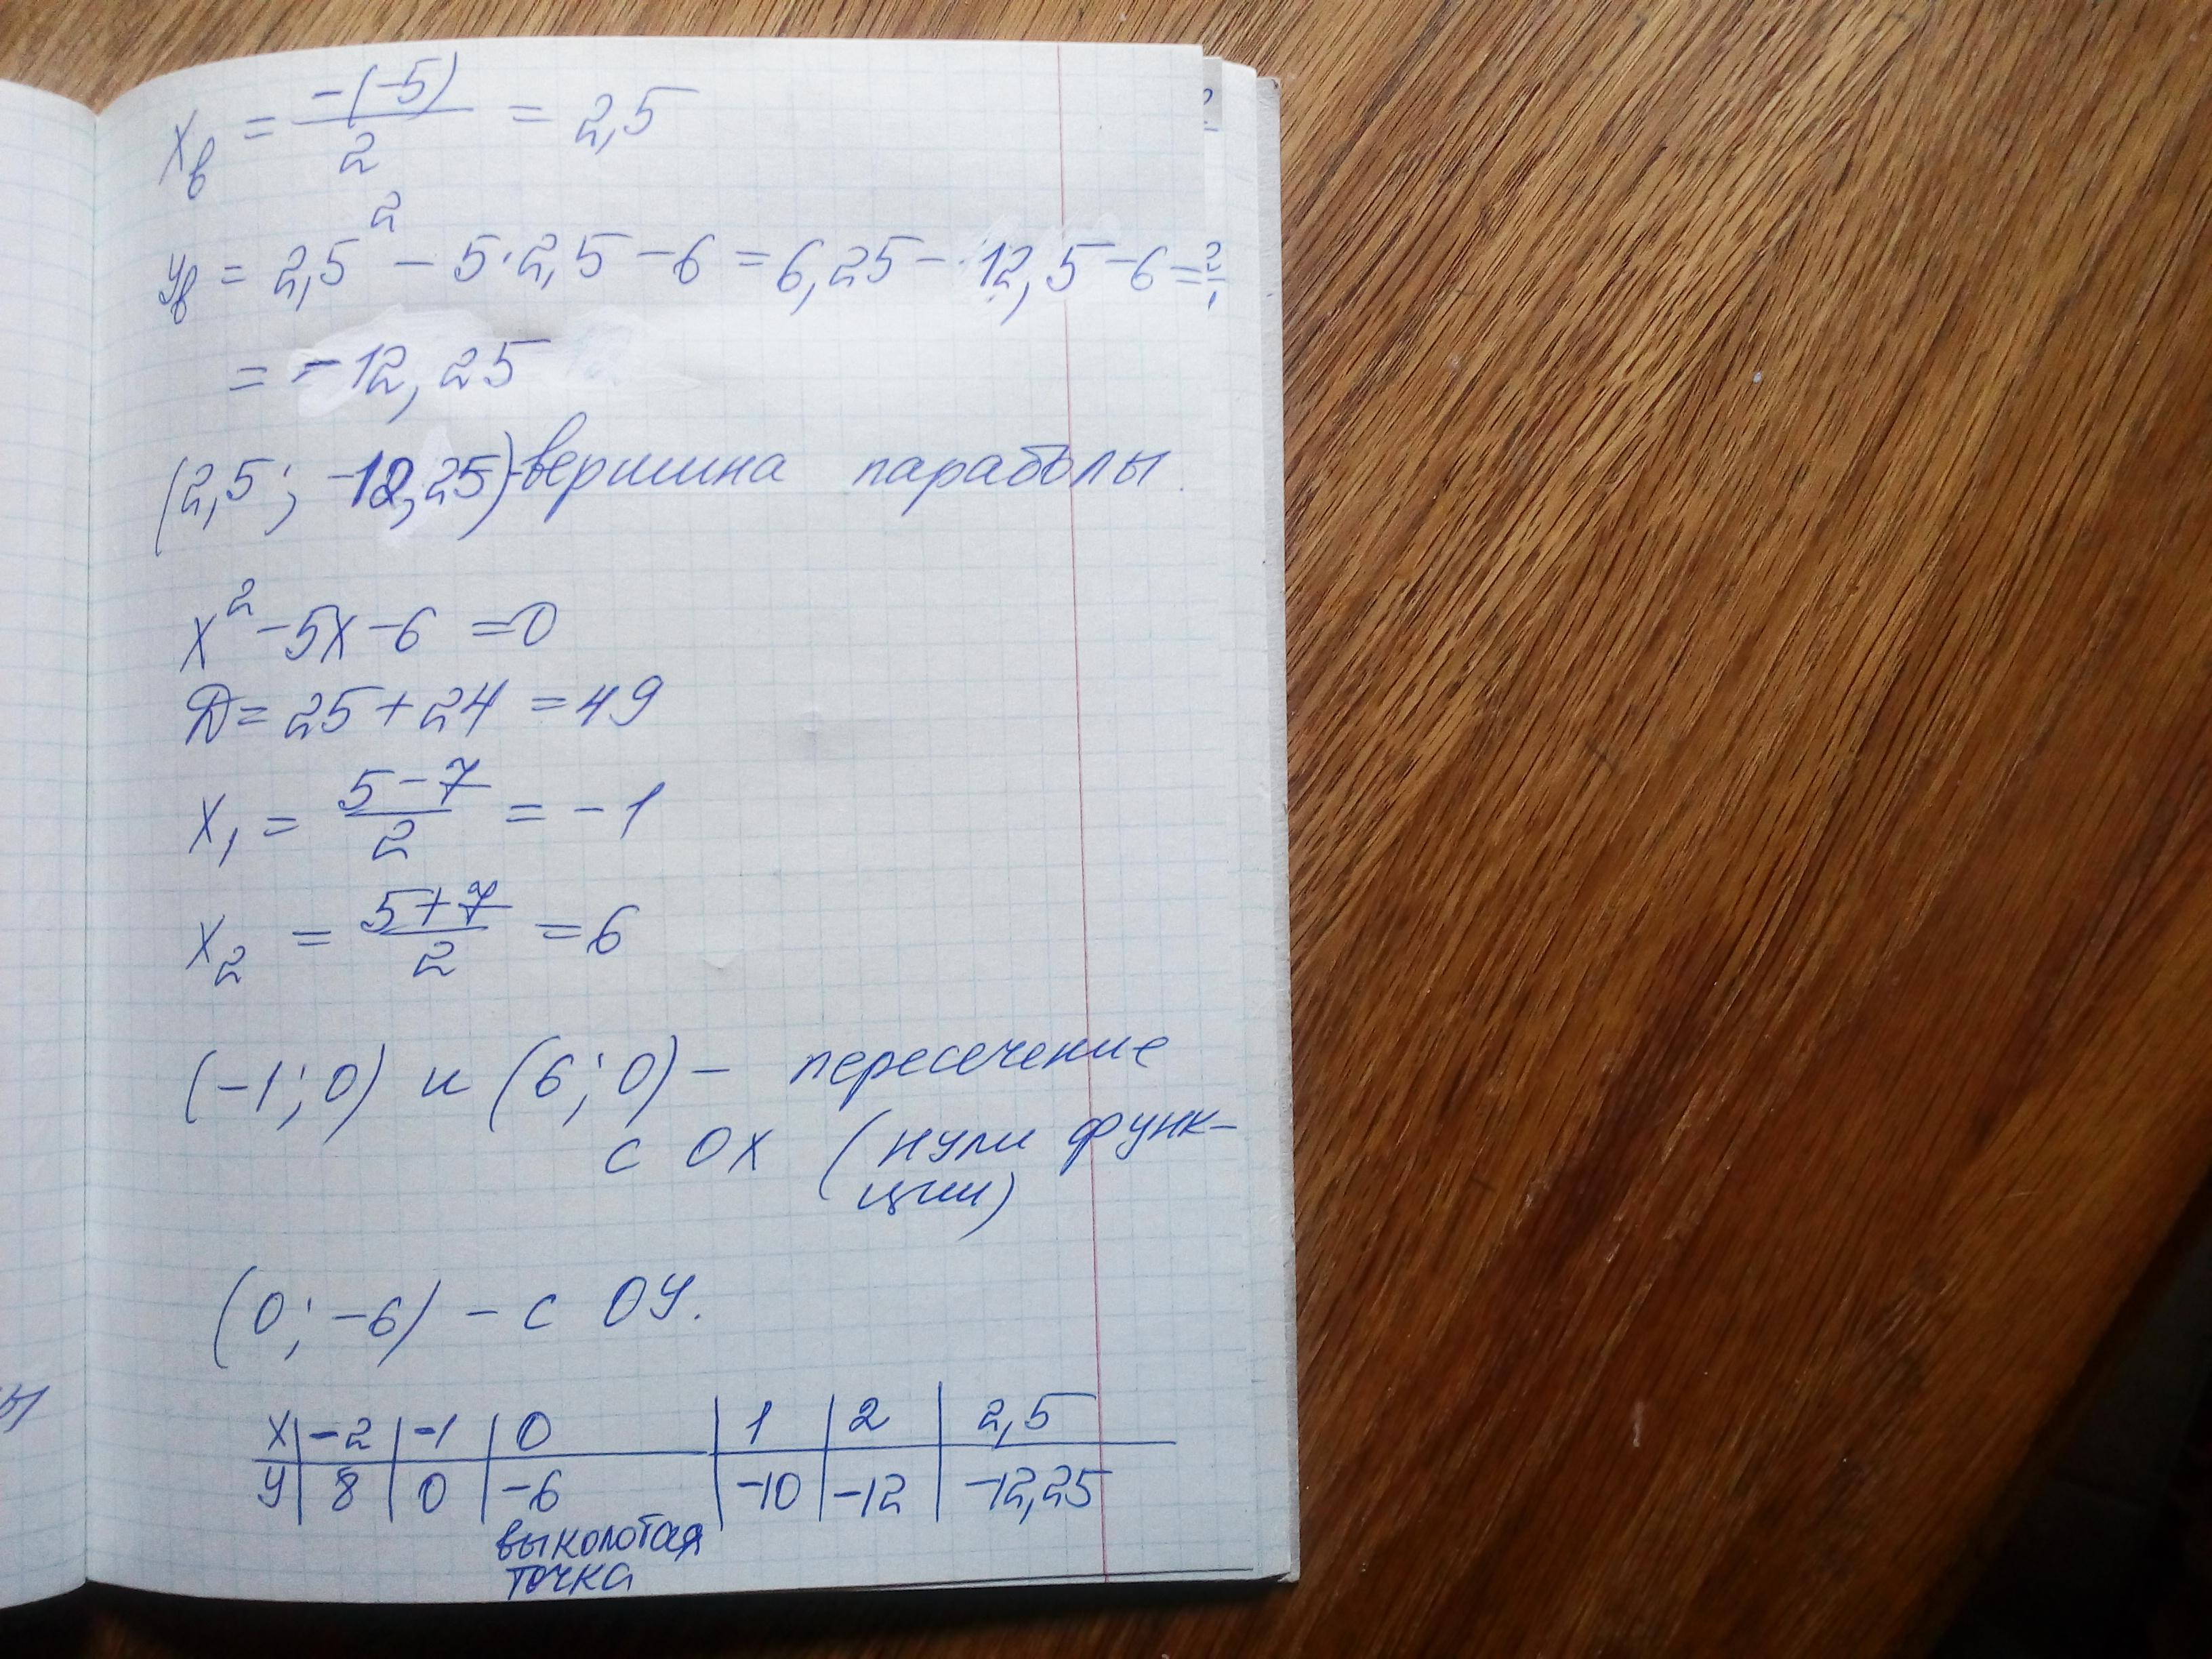 xв = -(-5)/2 = 2,5
yв = 2,5² - 5·2,5 - 6 = 6,25 - 12,5 - 6 =
= -12,25
(2,5; -12,25)-вершина параболы.
x² - 5x - 6 = 0
Д = 25 + 24 = 49
x₁ = (5-7)/2 = -1
x₂ = (5+7)/2 = 6
(-1; 0) и (6; 0) - пересечение
с OX (нули функ-
ции)
(0; -6) - с OУ.
X | -2 | -1 | 0 | 1 | 2 | 2,5
У | 8 | 0 | -6 | -10 | -12 | -12,25
выколотая
точка